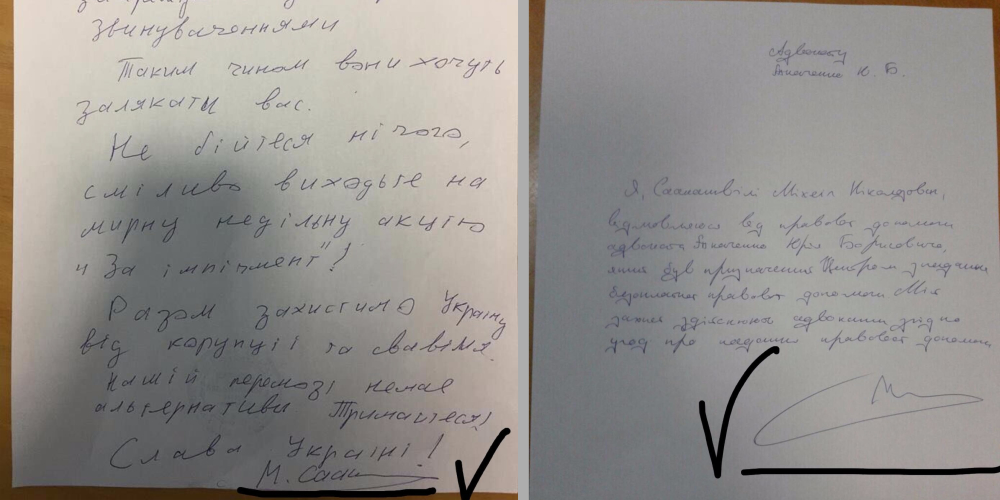 звинуваченнями
Таким чином вони хочуть
залякати вас.
Не бійтеся нічого,
сміливо виходьте на
мирну недільну акцію
"За імпічмент"!
Разом захистимо Україну
від корупції та свавілля.
Нашій перемозі немає
альтернативи Тримайтеся!
Слава Україні!
М. Саак
Адвокату
Ю. Б.
Я, Саакашвілі Міхеіл Ніколозович,
відмовляюся від правової допомоги
адвоката Юрія Борисовича,
який був призначений Центром надання
безоплатної правової допомоги Мій
захист здійснюють адвокати згідно
угод про надання правової допомоги